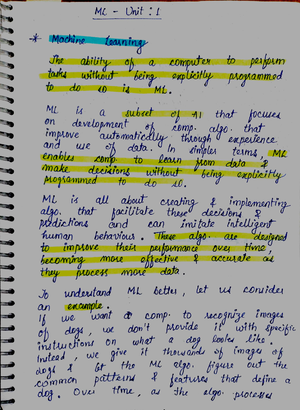 ML - Unit : 1
* Machine Learning
The ability of a computer to perform
tasks without being explicitly programmed
to do so is ML.
ML is a subset of AI that focuses
on development of comp. algo. that
improve automatically through experience
and use of data. In simpler terms, ML
enables comp. to learn from data &
make decisions without being explicitly
programmed to do so.
ML is all about creating & implementing
algo. that facilitate these decisions &
predictions and can imitate intelligent
human behaviour. These algo. are designed
to improve their performance over time,
becoming more effective & accurate as
they process more data.
To understand ML better let us consider
an example.
If we want a comp. to recognize images
of dogs, we don't provide it with specific
instructions on what a dog looks like.
Instead, we give it thousands of images of
dogs & let the ML algo. figure out the
common patterns & features that define a
dog. Over time, as the algo. processes